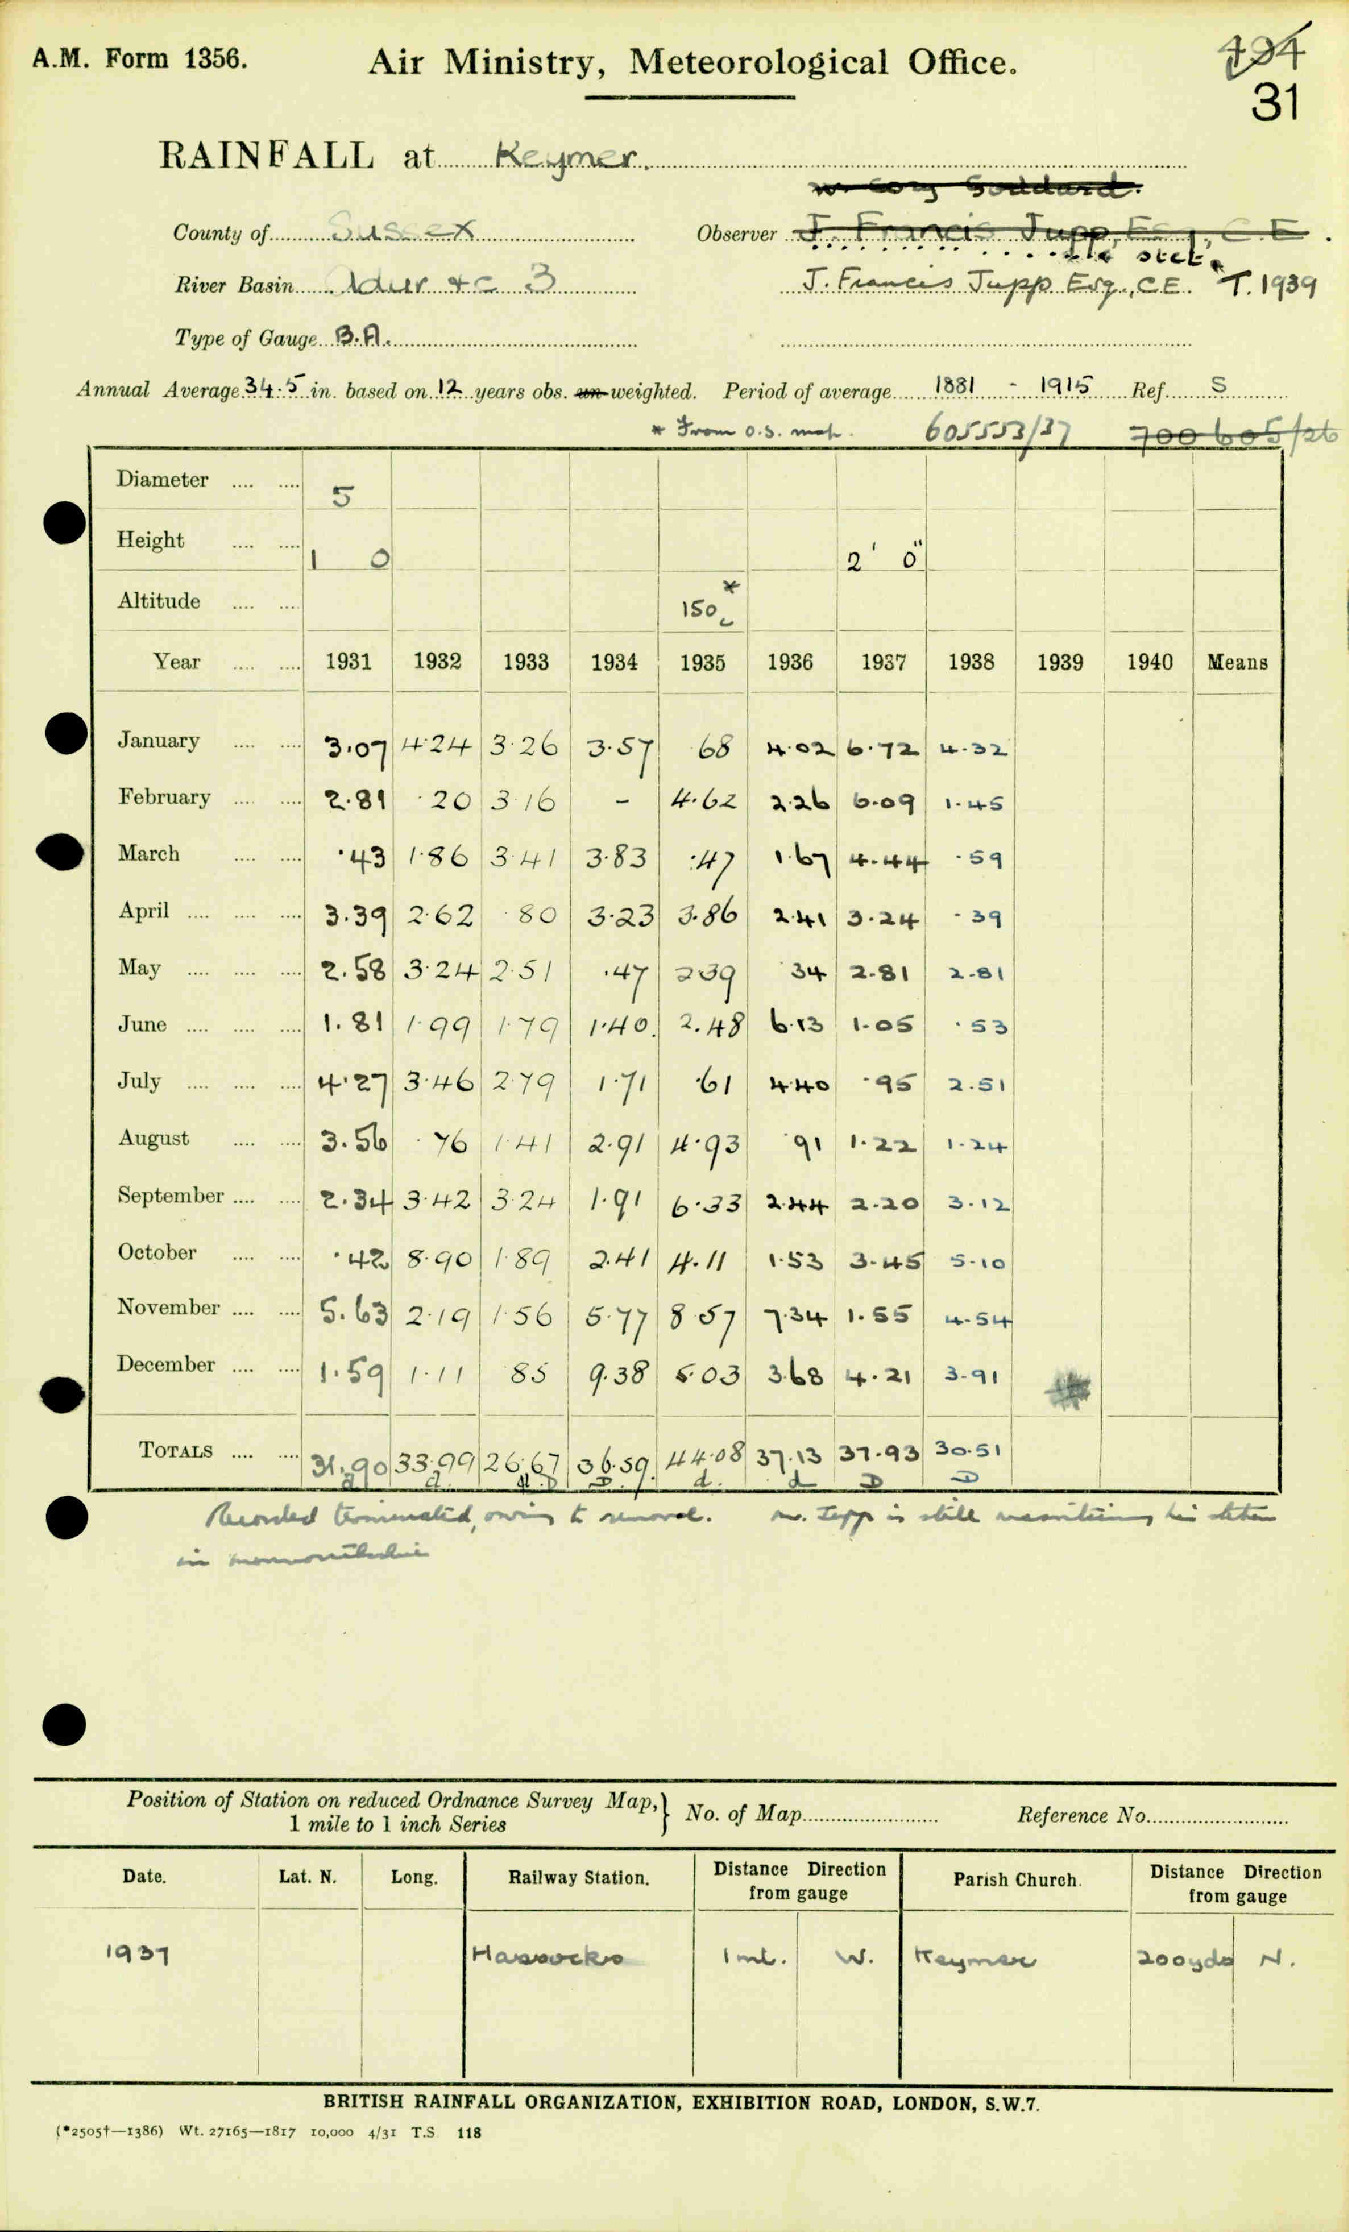 A.M. Form 1356.
Air Ministry, Meteorological Office.
194
31
RAINFALL at Keymer.
W. Cory Goddard.
County of Sussex Observer J. Francis Jupp, Esq, C.E.
stet
River Basin Adur &c 3 J. Francis Jupp Esq., C.E. T. 1939
Type of Gauge B.A.
Annual Average 34.5 in. based on 12 years obs. un-weighted. Period of average 1881 - 1915 Ref. S
* From O.S. map. 605553/37 700605/26
Diameter 5
Height 1 0 2' 0"
Altitude 150 *
Year 1931 1932 1933 1934 1935 1936 1937 1938 1939 1940 Means
January 3.07 4.24 3.26 3.57 .68 4.02 6.72 4.32
February 2.81 .20 3.16 - 4.62 2.26 6.09 1.45
March .43 1.86 3.41 3.83 .47 1.67 4.44 .59
April 3.39 2.62 .80 3.23 3.86 2.41 3.24 .39
May 2.58 3.24 2.51 .47 2.39 .34 2.81 2.81
June 1.81 1.99 1.79 1.40 2.48 6.13 1.05 .53
July 4.27 3.46 2.79 1.71 .61 4.40 .95 2.51
August 3.56 .76 1.41 2.91 4.93 .91 1.22 1.24
September 2.34 3.42 3.24 1.91 6.33 2.44 2.20 3.12
October .42 8.90 1.89 2.41 4.11 1.53 3.45 5.10
November 5.63 2.19 1.56 5.77 8.57 7.34 1.55 4.54
December 1.59 1.11 .85 9.38 5.03 3.68 4.21 3.91
TOTALS 31.90 33.99 26.67 36.59 44.08 37.13 37.93 30.51
d d. D D. d. d D D
Recorded terminated, owing to removal. Mr. Jupp is still maintaining his station
in Monmouthshire
Position of Station on reduced Ordnance Survey Map,} No. of Map Reference No.
1 mile to 1 inch Series
Date. Lat. N. Long. Railway Station. Distance Direction from gauge Parish Church. Distance Direction from gauge
1937 Hassocks 1 ml. W. Keymer 200yds N.
BRITISH RAINFALL ORGANIZATION, EXHIBITION ROAD, LONDON, S.W.7.
(*2505†—1386) Wt. 27165—1817 10,000 4/31 T.S 118